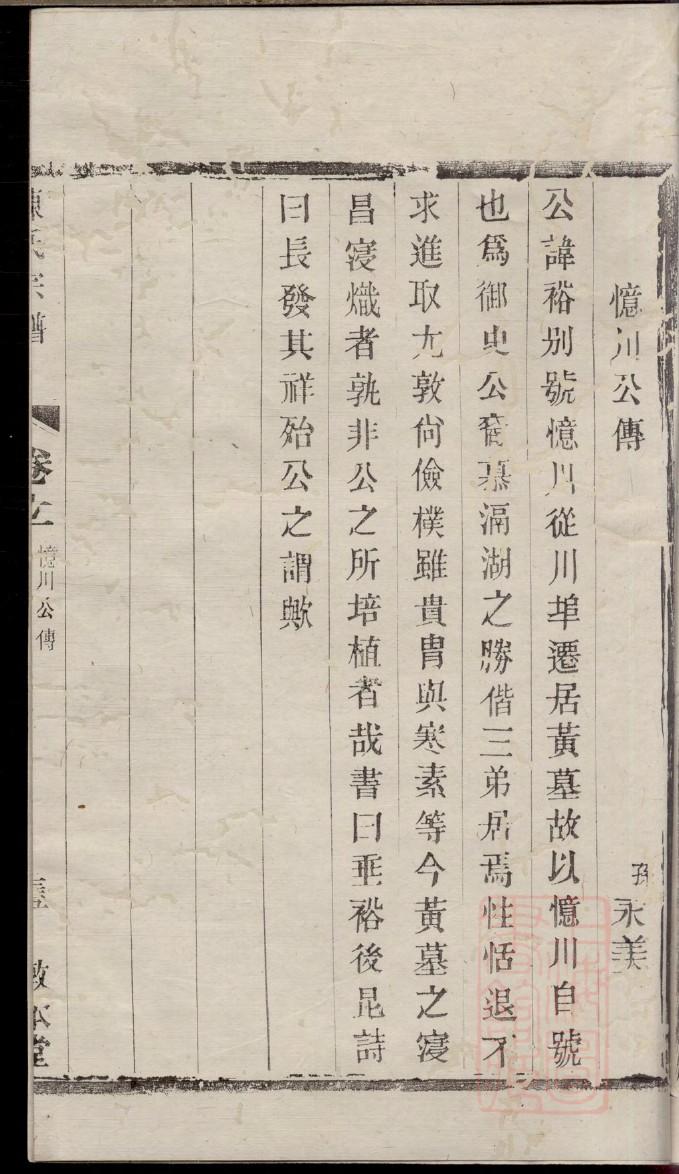 憶川公傳
孫永美
公諱裕别號憶川從川埠遷居黃墓故以憶川自號
也爲御史公裔慕滆湖之勝偕三弟居焉性恬退不
求進取尤敦尙儉樸雖貴冑與寒素等今黃墓之寖
昌寖熾者孰非公之所培植者哉書曰垂裕後昆詩
曰長發其祥殆公之謂歟
氏宗譜
卷
憶川公傳
敦本堂